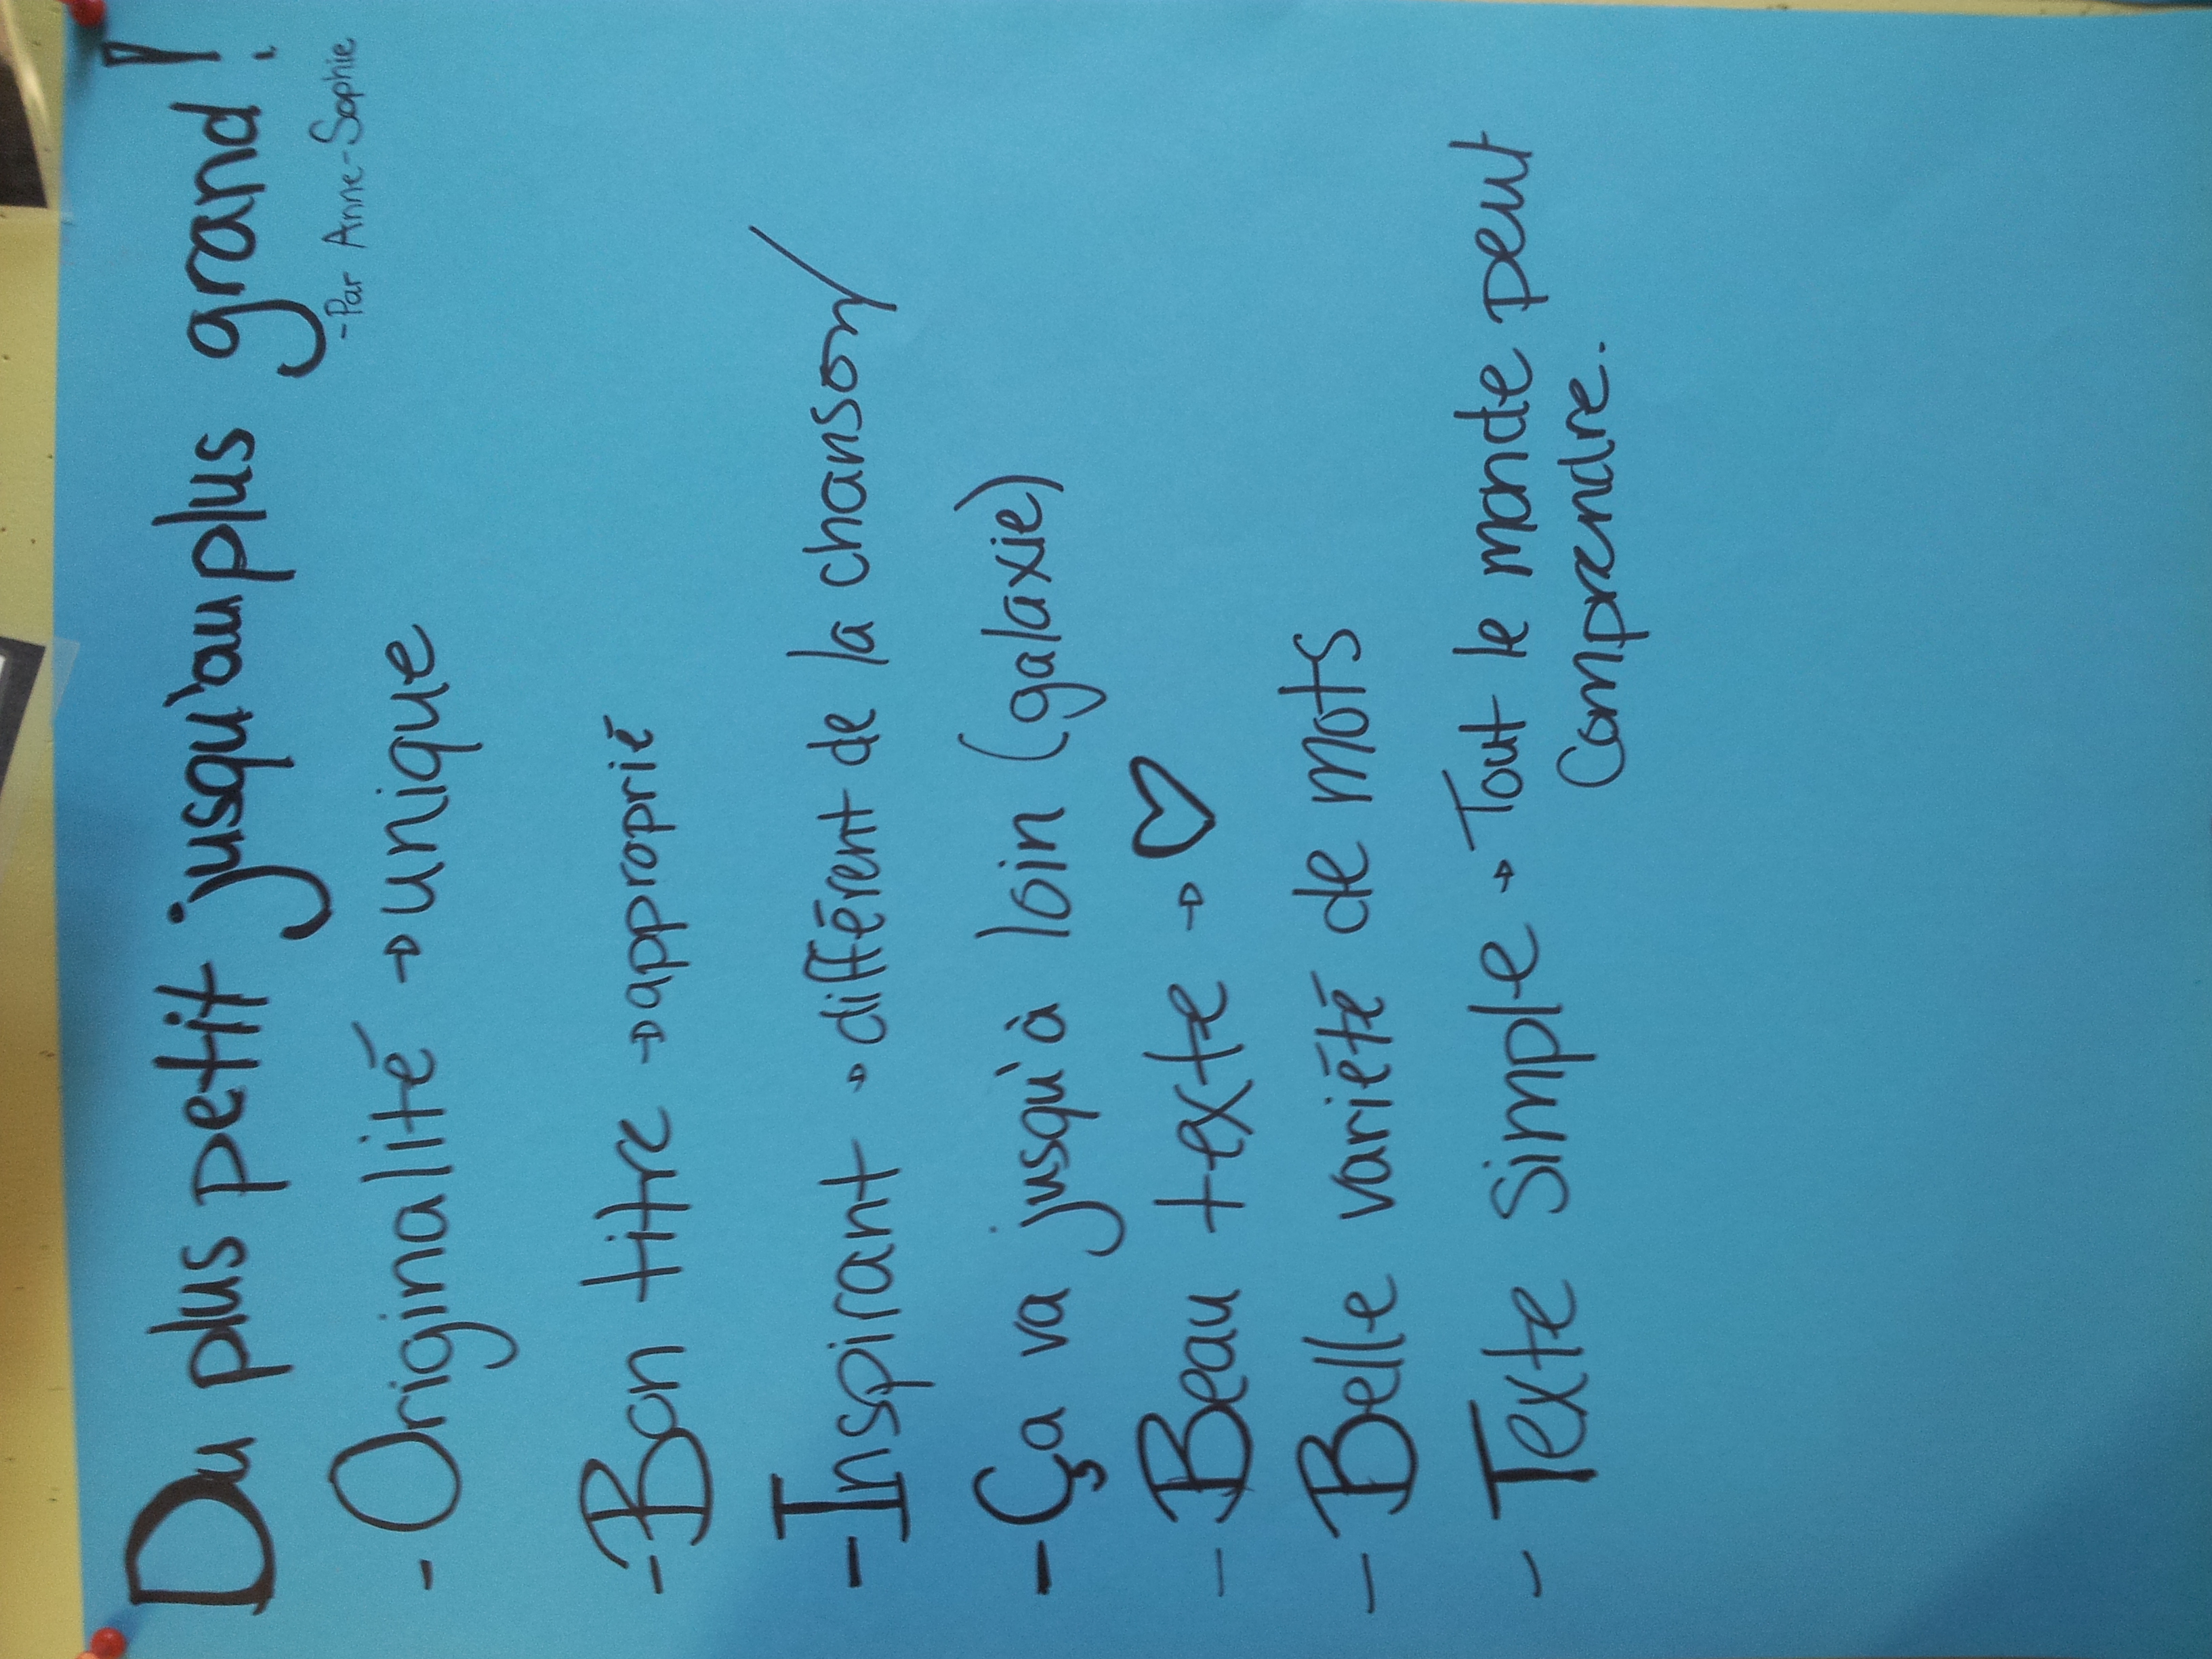 Du plus petit jusqu'au plus grand!
-Par Anne-Sophie
-Originalité → unique
-Bon titre → approprié
-Inspirant → différent de la chanson
-Ça va jusqu'à loin (galaxie)
-Beau texte → ♡
-Belle variété de mots
-Texte simple → Tout le monde peut
comprendre.